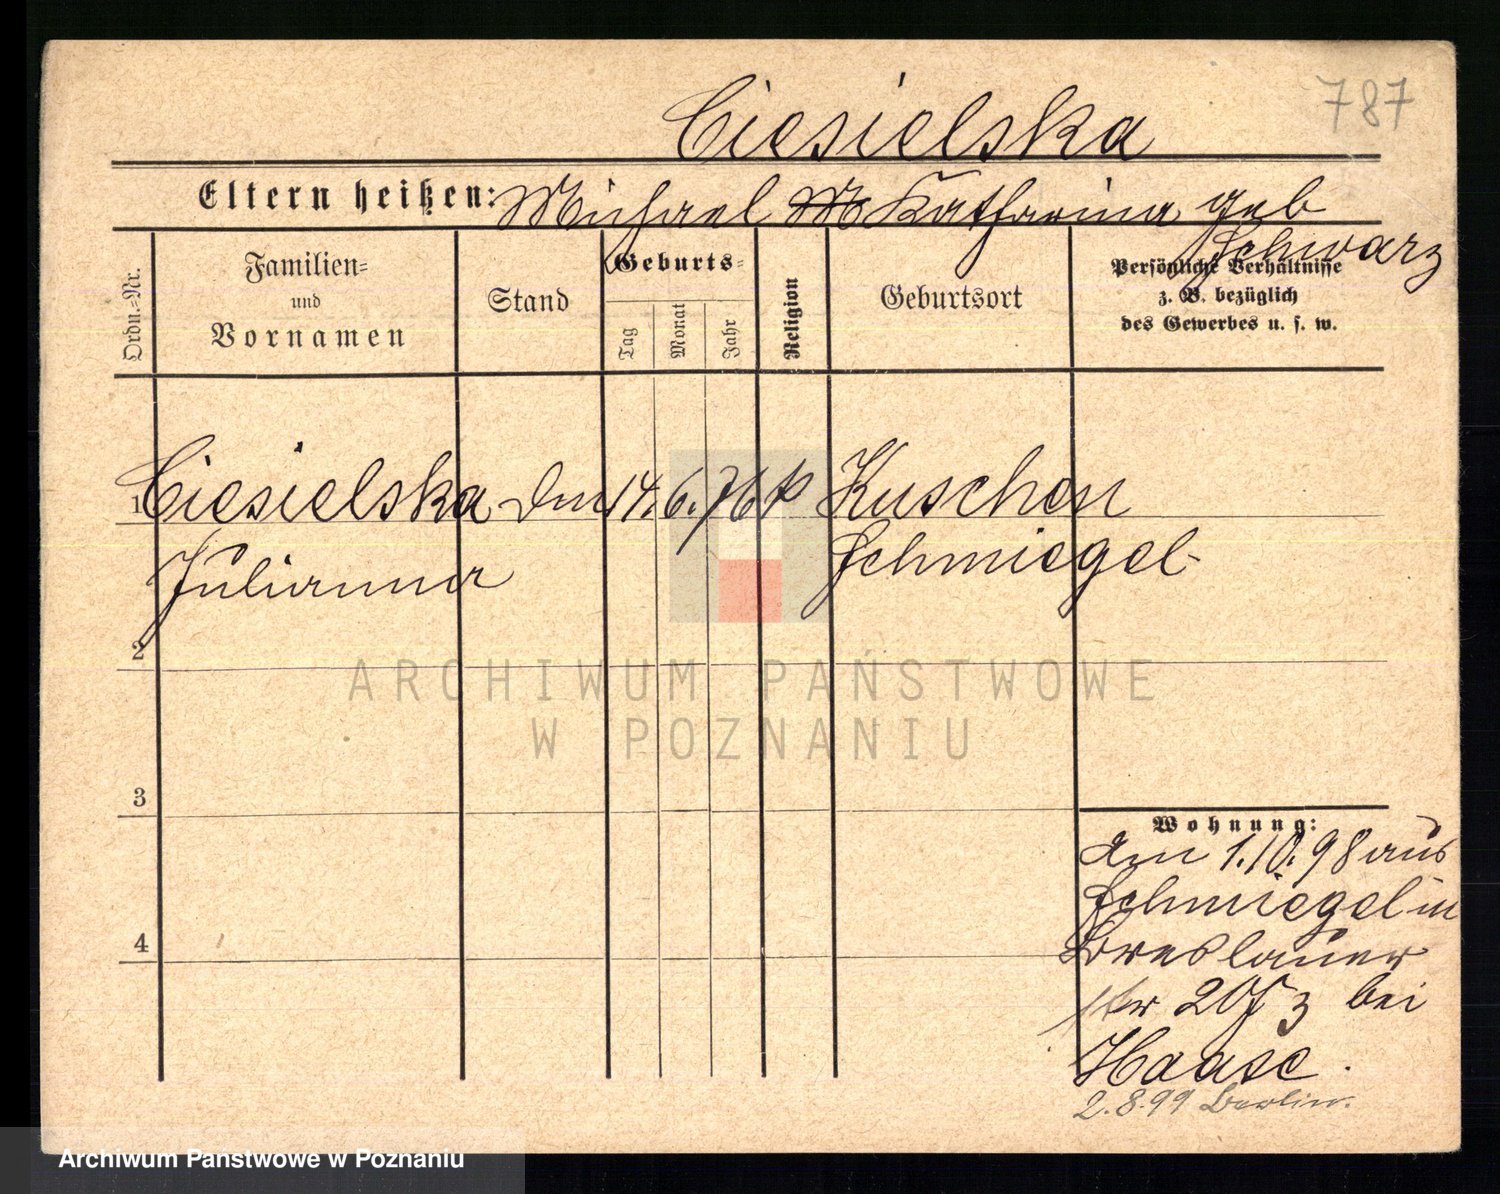 787
Ciesielska
Eltern heißen: Michael M Katharina geb
Schwarz
Ordn.=Nr.
Familien=
und
Vornamen
Stand
Geburts=
Tag
Monat
Jahr
Religion
Geburtsort
Persönliche Verhältnisse
z. B. bezüglich
des Gewerbes u. s. w.
1 Ciesielska 14. 6. 76 k Kuschen
Julianna Schmiegel
2
ARCHIWUM PAŃSTWOWE
W POZNANIU
3
Wohnung:
am 1.10.98 aus
Schmiegel in
4
Breslauer
str 20 bei
Haase.
2.8.99 Berlin.
Archiwum Państwowe w Poznaniu